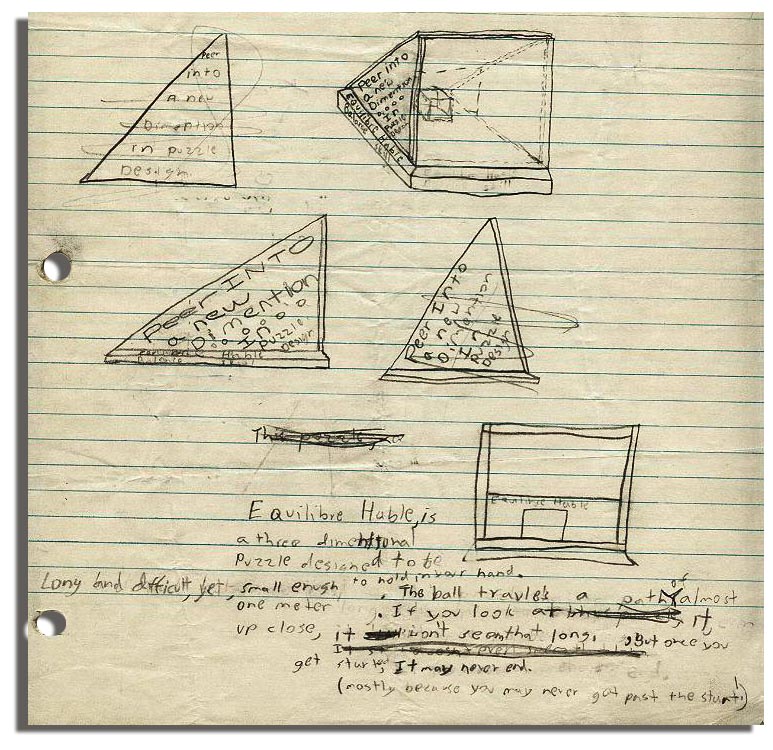 Peer
into
a new
Dimention
in puzzle
Design
Peer into
a new
Dimention
In
Puzzle
Equilibre Hable
Peer INTO
a new
Dimention
In
Puzzle
Design
Hable
Peer Into
a new
Dimention
In
Puzzle
Design
This puzzle
Equilibre Hable
Equilibre Hable, is
a three dimentional
Puzzle designed to be
Long and difficult, yet, small enugh to hold in your hand.
The ball travles a path of almost
one meter long. If you look at it,
up close, it isn't seem that long. But once you
get started, It may never end.
(mostly because you may never get past the start!)